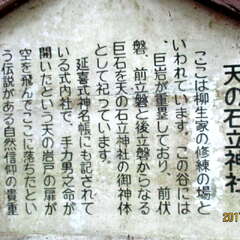 天の石立神社
ここは柳生家の修練の場と
いわれています。この谷には
、巨岩が重畳しており、前伏
磐、前立磐と後立磐からなる
巨石を天の石立神社の御神体
として祀っています。
延喜式神名帳にも記されて
いる式内社で、手力男之命が
開いたという天の岩戸の扉が
空を飛んでここに落ちたとい
う伝説がある自然信仰の貴重
201